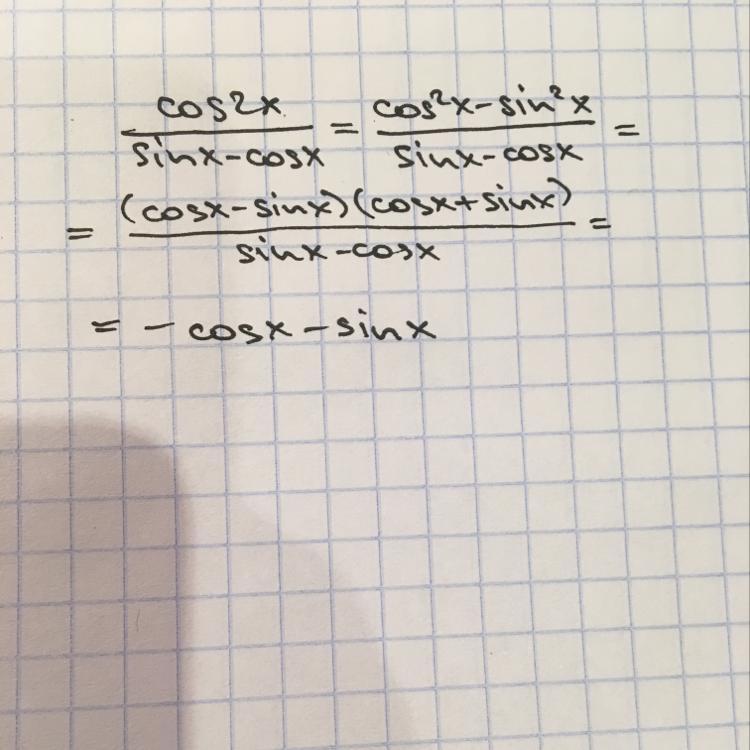 cos2x/(sinx-cosx) = (cos²x-sin²x)/(sinx-cosx) =
= (cosx-sinx)(cosx+sinx)/(sinx-cosx) =
= -cosx-sinx